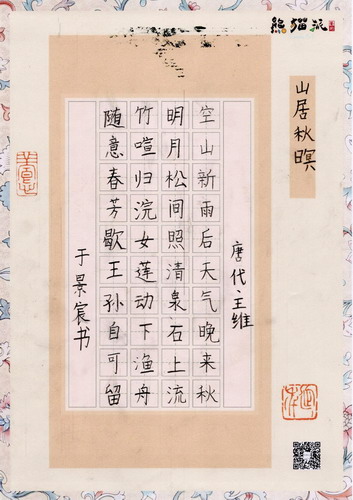 山居秋暝
唐代·王维
空山新雨后天气晚来秋
明月松间照清泉石上流
竹喧归浣女莲动下渔舟
随意春芳歇王孙自可留
于景宸书